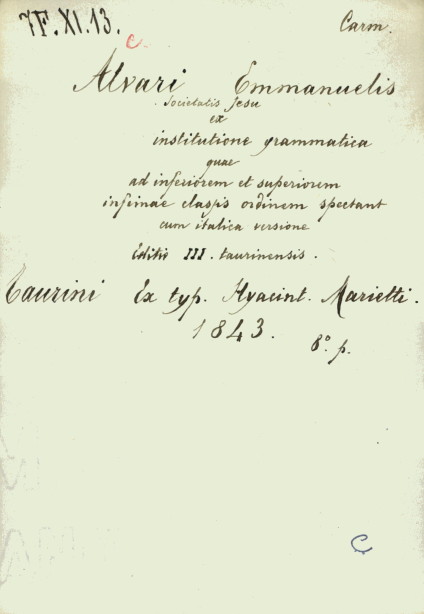 7F.XI.13.
Carm.
c.
Alvari Emmanuelis
Societatis Jesu
ex
institutione grammatica
quae
ad inferiorem et superiorem
infimae classis ordinem spectant
cum italica versione
Editio III. taurinensis.
Taurini Ex typ. Hyacint. Marietti.
1843.
8.° p.
C